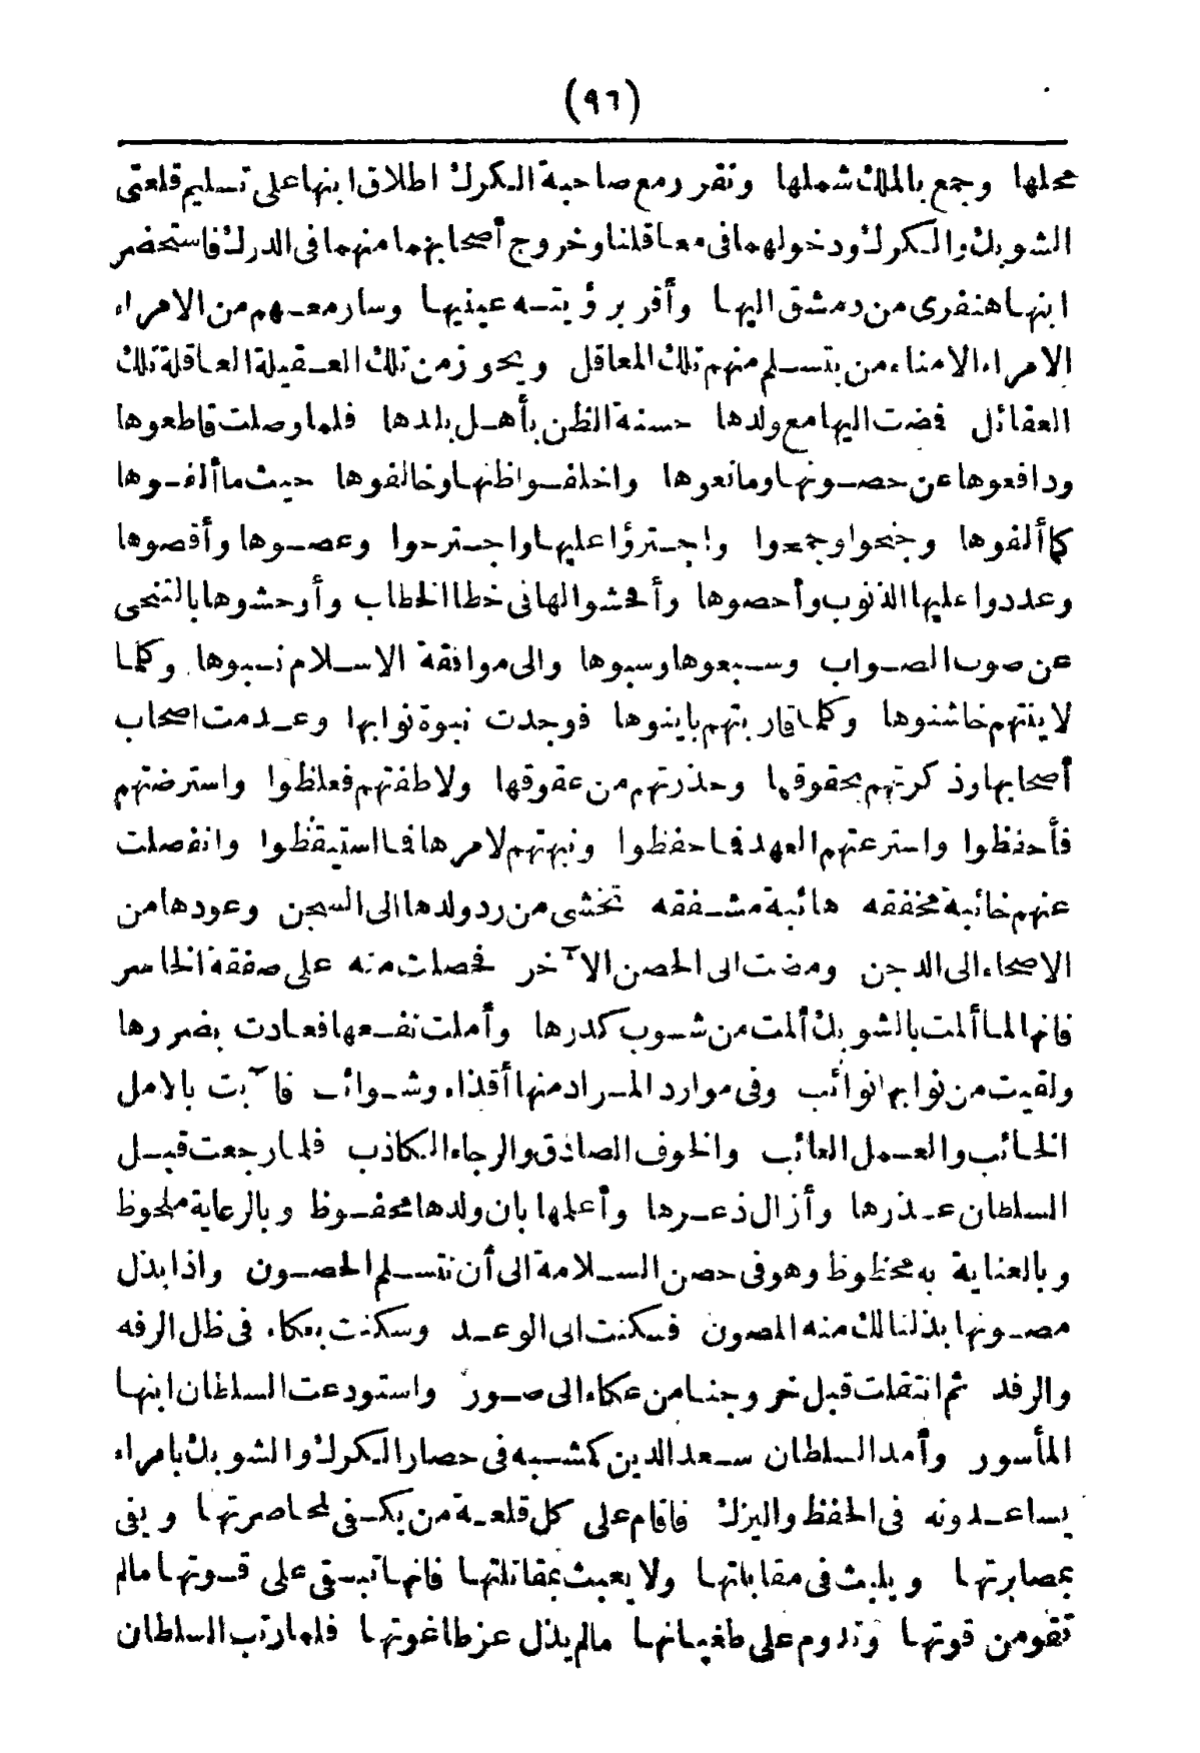 (٩٦)
محلها وجمع بالملك شملها وتقرر مع صاحبة الكرك اطلاق ابنها على تسليم قلعتى
الشوبك والكرك ودخولهما فى معاقلنا وخروج أصحابهما منهما فى الدرك فاستحضر
ابنها هنفرى من دمشق اليها وأقر برؤيته عينيها وسار معهم من الامراء
الامراء الامناء من يتسلم منهم تلك المعاقل ويحوز من تلك العقيلة العاقلة تلك
العقائل فضت اليها مع ولدها حسنة الظن بأهل بلدها فلما وصلت قاطعوها
ودافعوها عن حصونها ومانعوها واخلفوا ظنها وخالفوها حيث ما ألفوها
كما ألفوها وجنحوا وجمحوا واجترؤا عليها واجترحوا وعصوها وأقصوها
وعددوا عليها الذنوب وأحصوها وأفحشوا لها فى خطا الخطاب وأوحشوها بالتنحى
عن صوب الصواب وسبعوها وسبوها والى موافقة الاسلام نسبوها وكلما
لاينتهم خاشنوها وكلما قاربتهم باينوها فوجدت نبوة نوابها وعدمت اصحاب
أصحابها وذكرتهم بحقوقها وحذرتهم من عقوقها ولاطفتهم فغلظوا واسترضتهم
فأحفظوا واسترعتهم العهد فما حفظوا ونبهتهم لامرها فما استيقظوا وانفصلت
عنهم خائبة مخفقه هائبة مشفقه تخشى من رد ولدها الى السجن وعودها من
الاصحاء الى الدجن ومضت الى الحصن الآخر فحصلت منه على صفقة الخاسر
فانها لما ألمت بالشوبك ألمت من شوب كدرها وأملت نفعها فعادت بضررها
ولقيت من نوابها نوائب وفى موارد المراد منها أقذاء وشوائب فآبت بالامل
الخائب والعمل العائب والخوف الصادق والرجاء الكاذب فلما رجعت قبل
السلطان عذرها وأزال ذعرها وأعلمها بان ولدها محفوظ وبالرعاية ملحوظ
وبالعناية به محظوظ وهو فى حصن السلامة الى أن نتسلم الحصون واذا بذل
مصونها بذلنا لك منه المصون فسكنت الى الوعد وسكنت بعكاء فى ظل الرفه
والرفد ثم انتقلت قبل خروجنا من عكاء الى صور واستودعت السلطان ابنها
المأسور وأمد السلطان سعد الدين كمشبه فى حصار الكرك والشوبك بامراء
يساعدونه فى الحفظ واليزك فاقام على كل قلعة من يكفى لمحاصرتها ويفى
بمصابرتها ويلبث فى مقابلتها ولا يعبث بمقاتلتها فانها تبقى على قوتها مالم
تقو من قوتها وتدوم على طغيانها مالم يذل عز طاغوتها فلما رتب السلطان